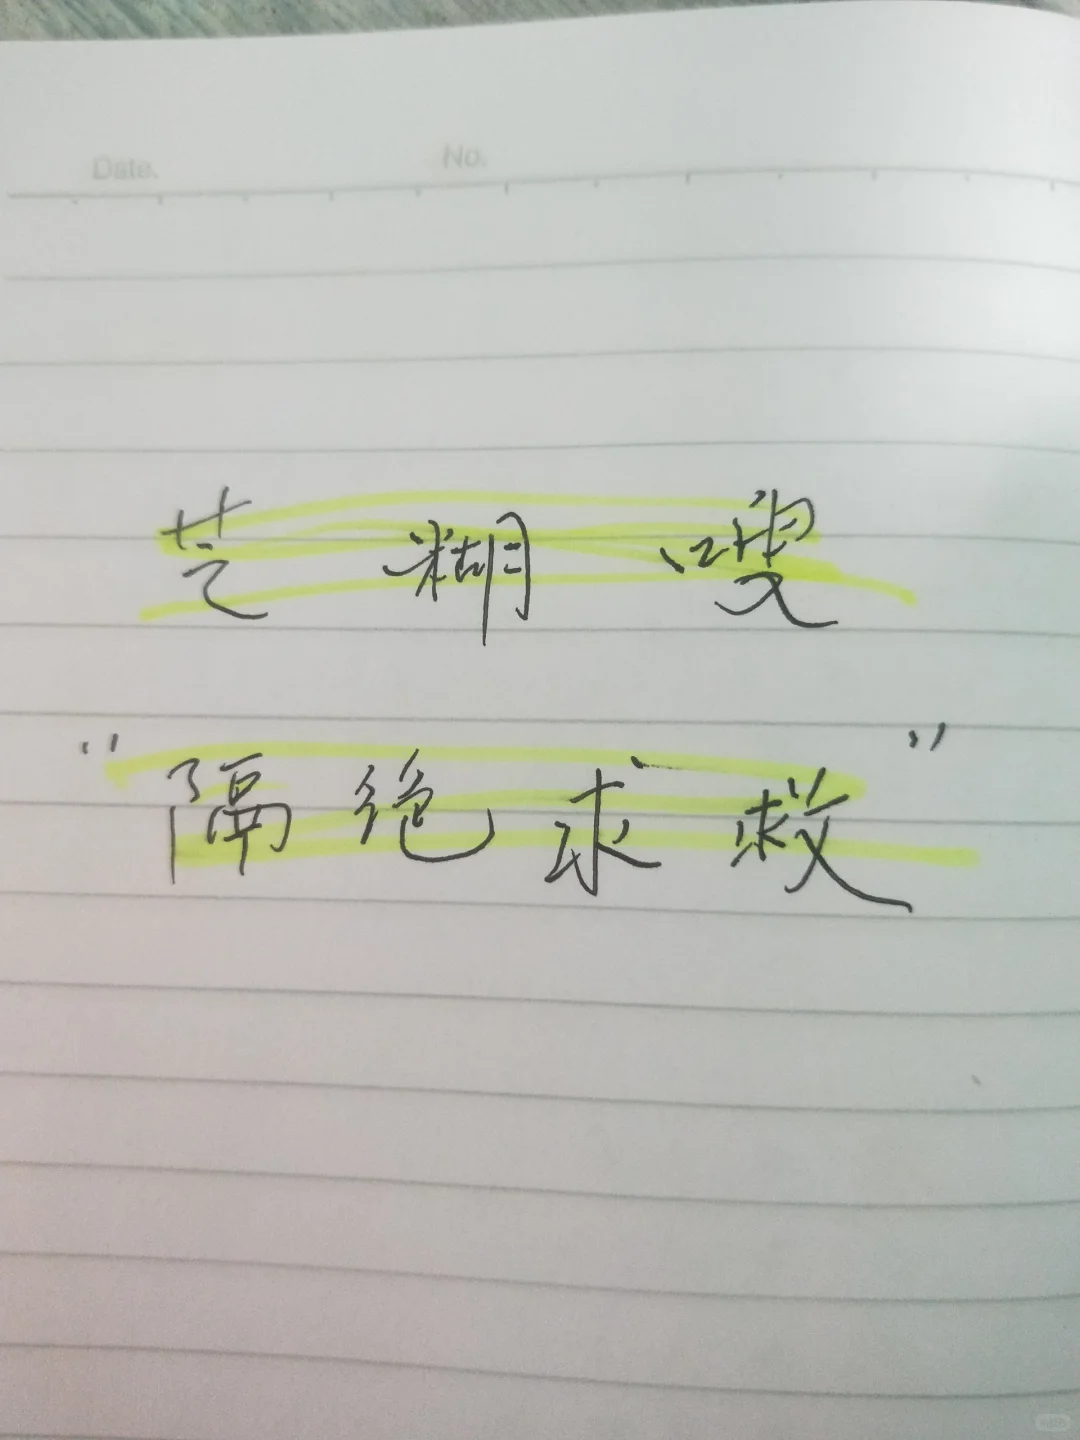 Date. No.
芝糊嗖
“隔绝求救”